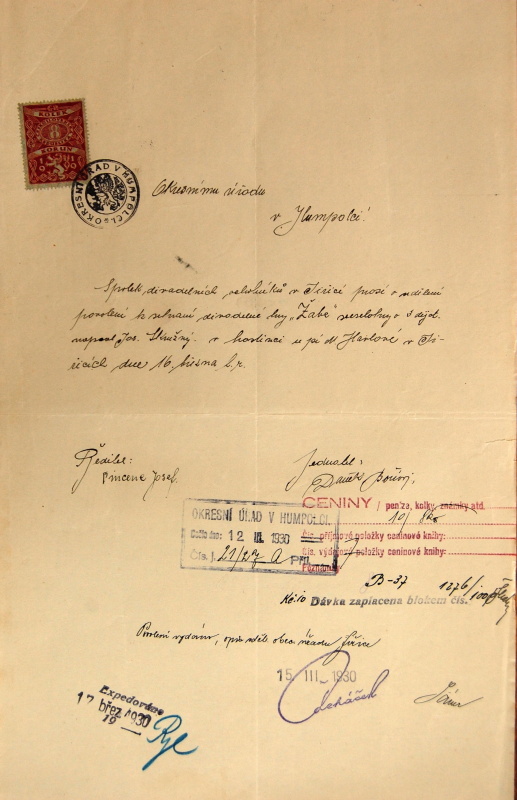 KOLEK
8
KORUN
OKRESNÍ ÚŘAD V HUMPOLCI
Okresnímu úřadu
v Humpolci!
Spolek divadelních ochotníků v Jiřicích prosí o udělení
povolení k sehrání divadelní hry „Žába" veselohry o 3 dějst.
napsal Jos. v hostinci u pí M Havlové v Ji-
řicích dne 16. března t. r.
Ředitel:
Vincenc Josef.
Jednatel:
Daněk
CENINY / peníze, kolky, známky atd.
10/ Kč
Čís. příjmové položky ceninové knihy:
Čís. výdajové položky ceninové knihy:
Poznámka
OKRESNÍ ÚŘAD V HUMPOLCI.
Došlo dne: 12 III. 1930
Čís. j. 21/27 A Příl.
B-37 1276/1008
Kč 10 Dávka zaplacena blokem čís.
Povolení vydáno, opis sděl. obec. úřadu Jiřice
15 III. 1930
Expedováno
17 břez. 1930
19